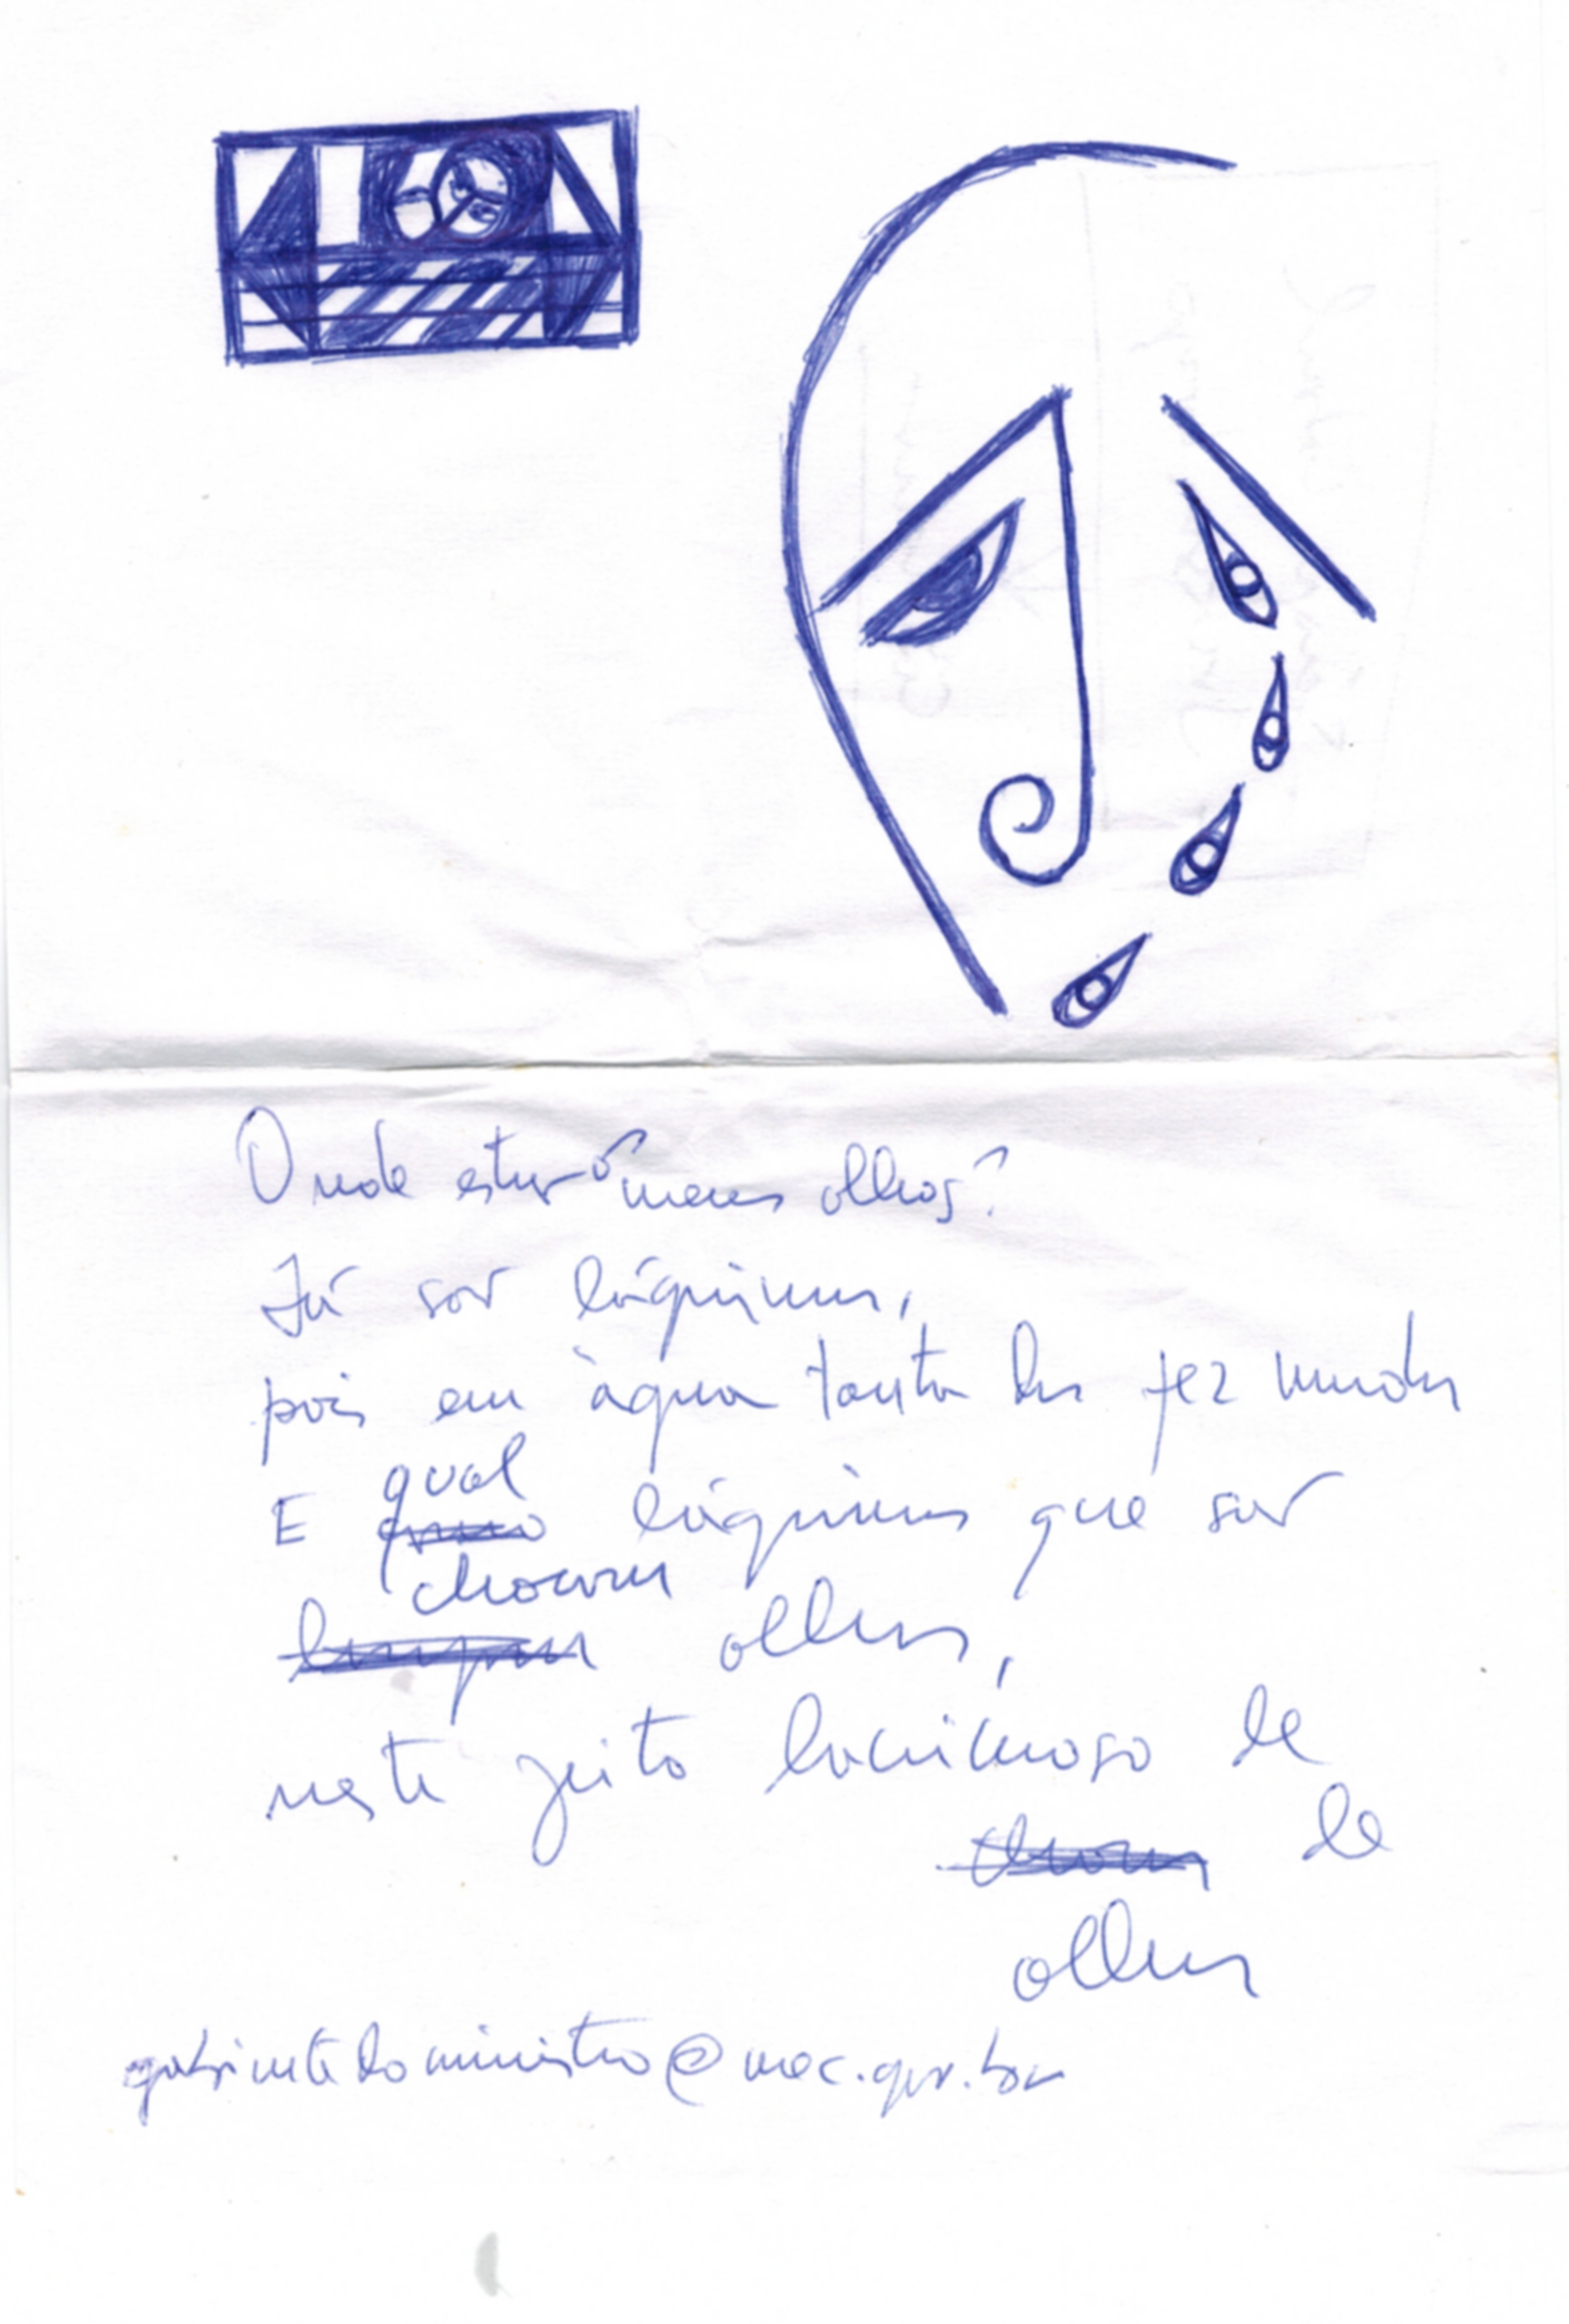 Onde estão meus olhos?
Já são lágrimas,
pois em água tanta los fez mudar
E qual lágrimas que são
choram olhos,
neste jeito lacrimoso de
de
olhar
gabinetedoministro@mec.gov.br